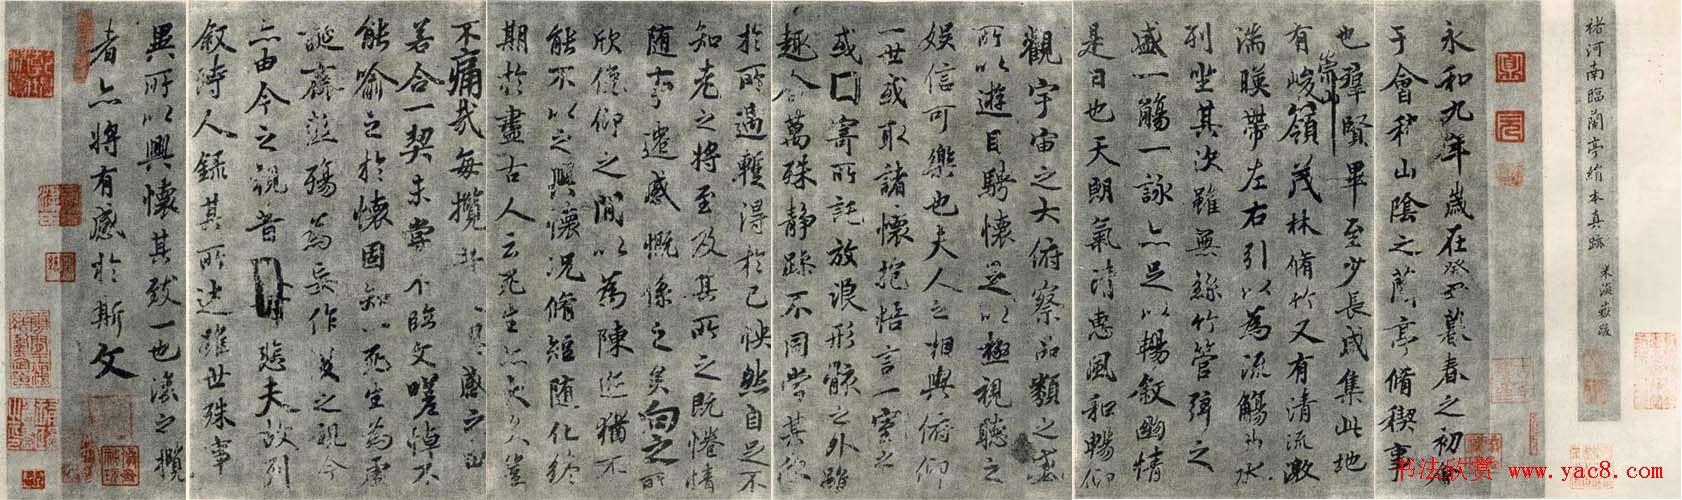 褚河南臨蘭亭絹本真跡 米海嶽跋
永和九年歲在癸丑暮春之初會
于會稽山陰之蘭亭脩稧事
也群賢畢至少長咸集此地
有崇山峻嶺茂林脩竹又有清流激
湍暎帶左右引以為流觴曲水
列坐其次雖無絲竹管弦之
盛一觴一詠亦足以暢敘幽情
是日也天朗氣清惠風和暢仰
觀宇宙之大俯察品類之盛
所以遊目騁懷足以極視聽之
娛信可樂也夫人之相與俯仰
一世或取諸懷抱悟言一室之
或因寄所託放浪形骸之外雖
趣舍萬殊靜躁不同當其欣
於所遇暫得於己怏然自足不
知老之將至及其所之既惓情
隨事遷感慨係之矣向之所
欣俛仰之閒以為陳迹猶不
能不以之興懷況脩短隨化終
期於盡古人云死生亦大矣豈
不痛哉每攬昔人興感之由
若合一契未嘗不臨文嗟悼不
能喻之於懷固知一死生為虛
誕齊彭殤為妄作後之視今
亦由今之視昔悲夫故列
敘時人錄其所述雖世殊事
異所以興懷其致一也後之攬
者亦將有感於斯文
书法欣赏 www.yac8.com